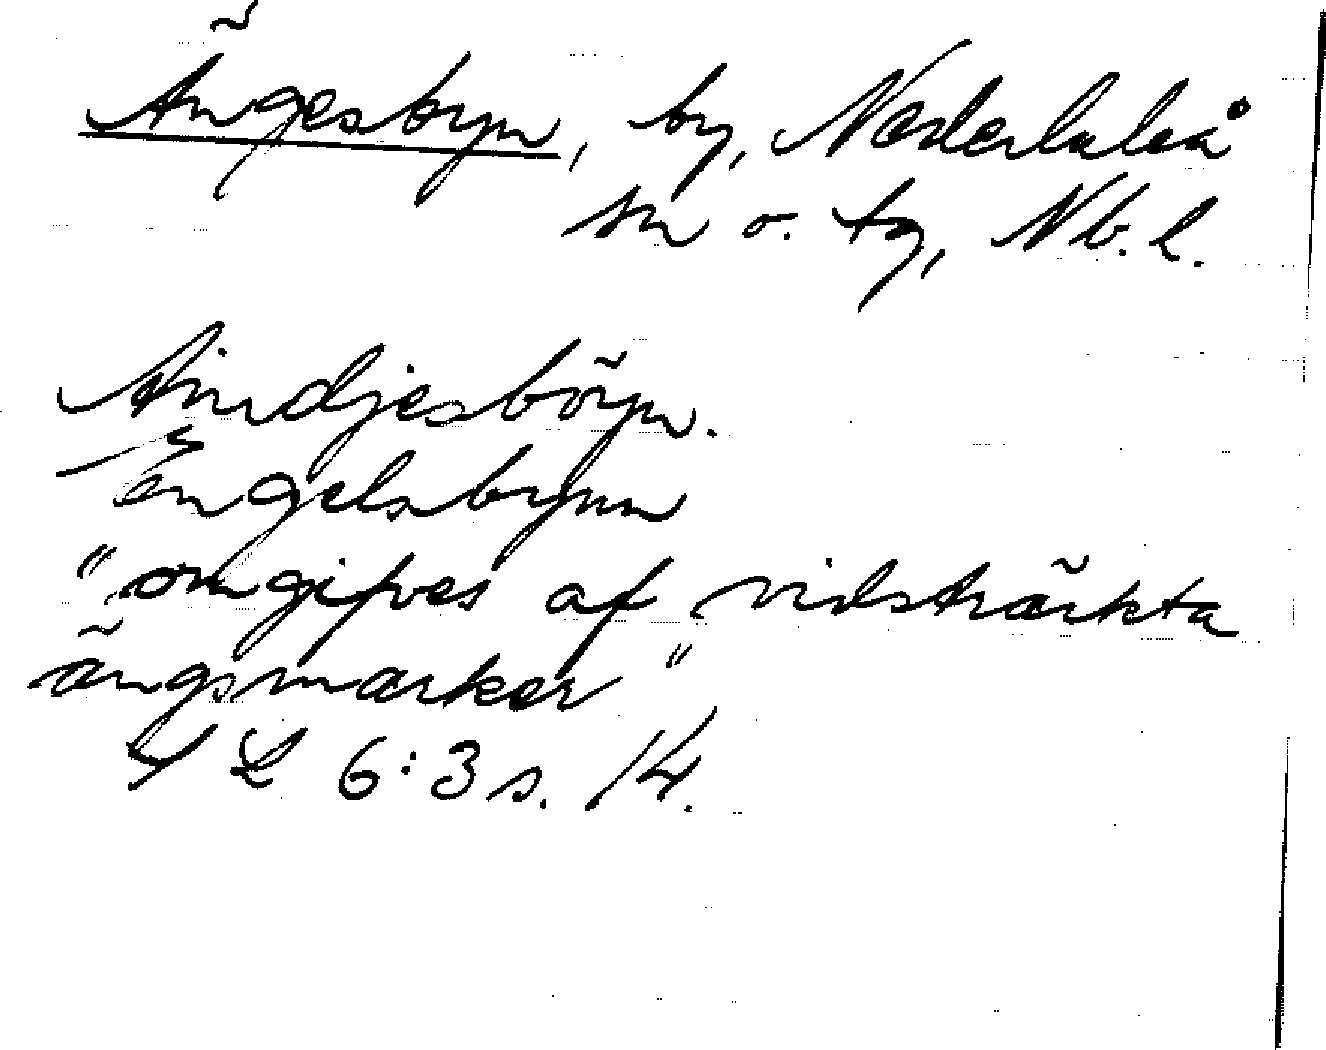 Ängesbyn, by, Nederluleå
sn o. tg, Nb. l.
Aindjesböyn.
Engelsbynn
"omgifves af vidsträckta
ängsmarker"
S L 6:3 s. 14.